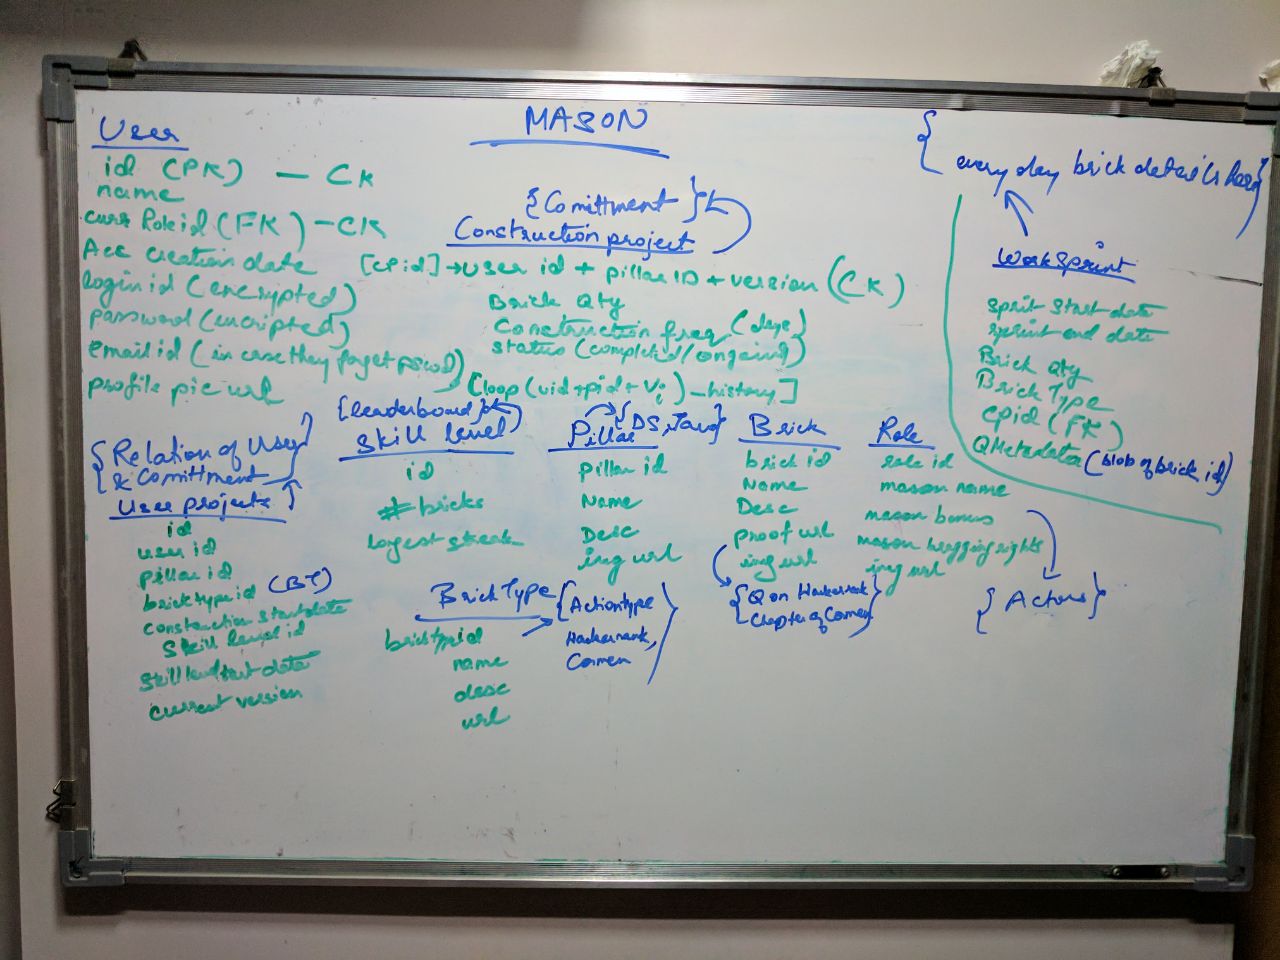 MASON
User
id (PK) — CK
name
curr Role id (FK) – CK
Acc creation date
login id (encrypted)
password (encripted)
email id (in case they forget pswd)
profile pic url
{Comittment}
Construction project
[CPid] → user id + pillar ID + version (CK)
Brick Qty
Construction freq (days)
status (completed/ongoing)
[loop (uid+pid+Vi) – history]
{every day brick details here}
WorkSprint
sprit start date
sprint end date
Brick Qty
Brick Type
CPid (FK)
QMetadata (blob of brick id)
{Relation of User
& Comittment}
User projects
id
user id
pillar id
brick type id (BT)
construction start date
Skill level id
Skill level start date
current version
{leaderboard}
Skill level
id
# bricks
longest streak
Pillar {DS, Java}
pillar id
Name
Desc
img url
Brick
brick id
Name
Desc
proof url
img url
{Q on Hackerrank
Chapter of Cormen}
Role
role id
mason name
mason bonus
mason bragging rights
img url
{Actors}
Brick Type
bricktypid
name
desc
url
{Actiontype
Hackerrank,
Cormen}